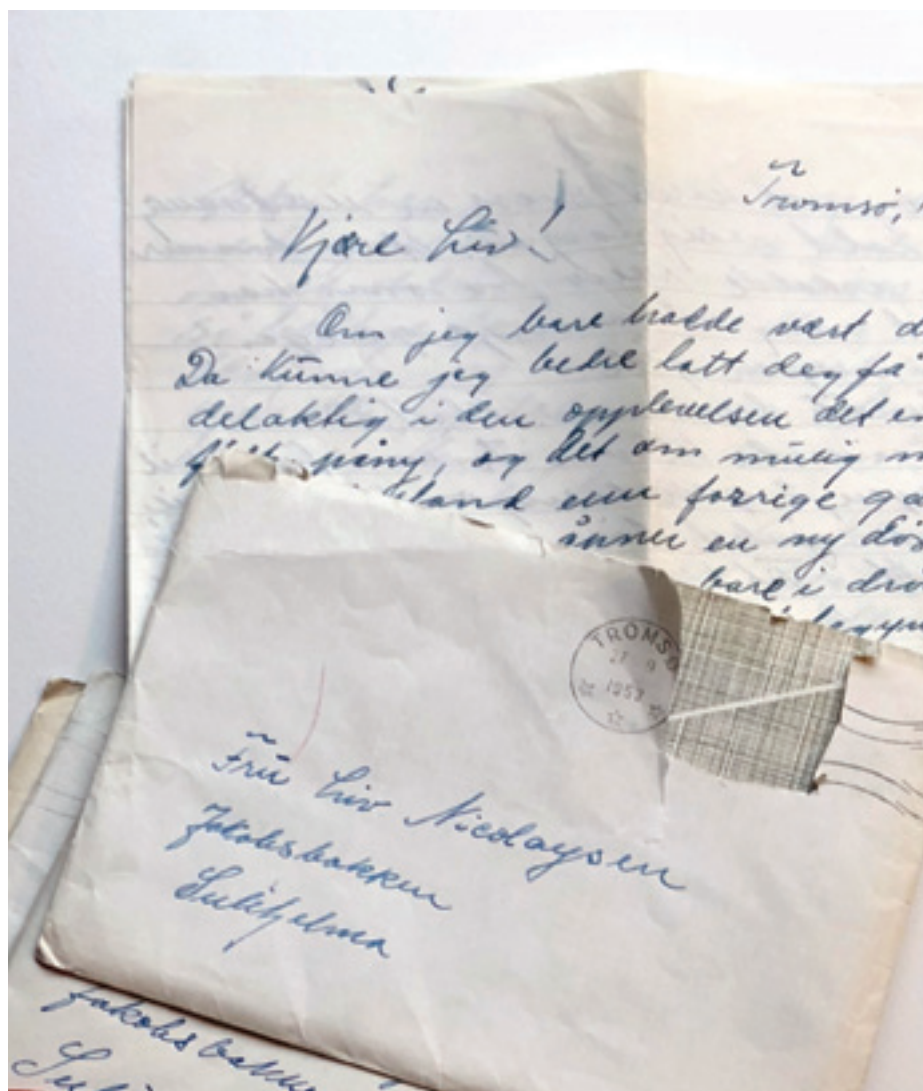 Tromsø,
Kjære Liv!
Om jeg bare hadde vært
Da kunne jeg bedre latt deg få
delaktig i den opplevelsen det
påny, og det om mulig
enn forrige
åpner en ny
bare i
TROMSØ
21 9
1953
Fru Liv Nicolaysen
Jakobsbakken
Sulitjelma
Jakobsbakken